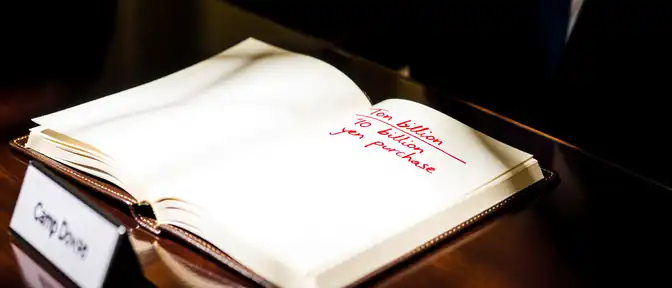 Ton billion
10 billion
yen purchase
Camp